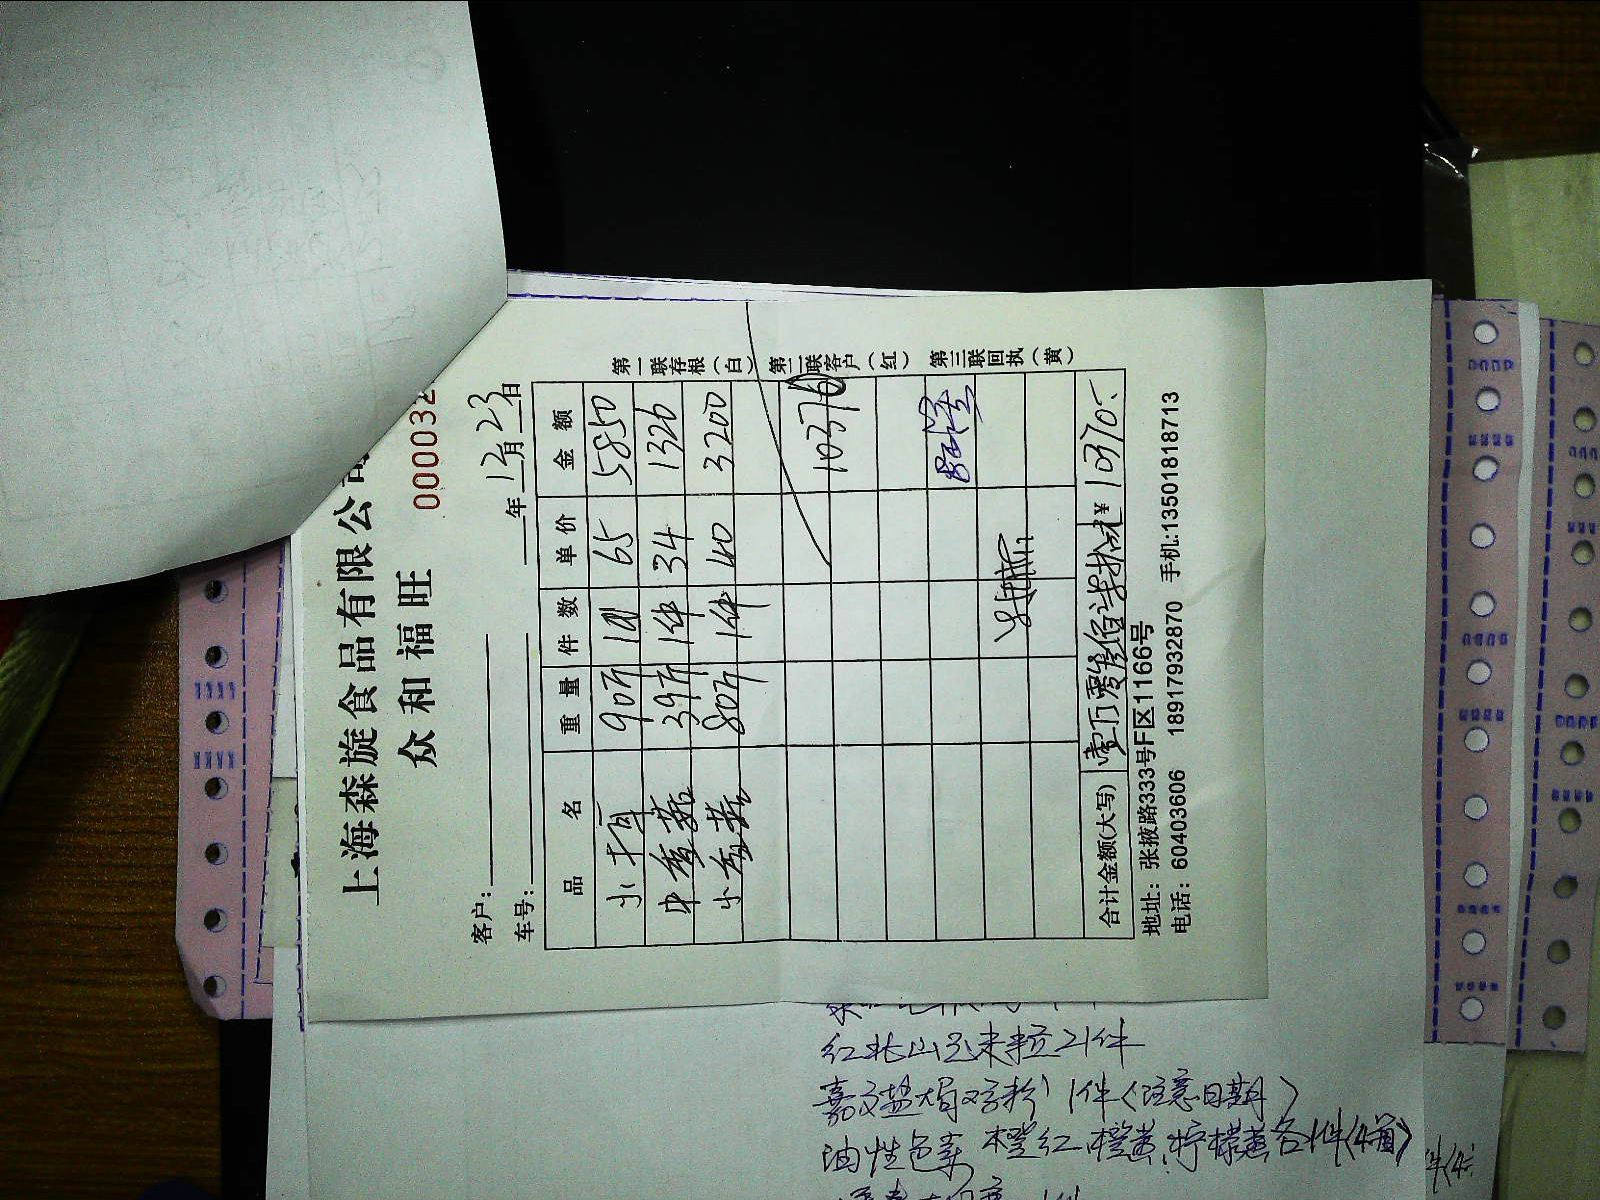 上海森旋食品有限公司
众和福旺
000032
客户:
车号:
年12月23日
品名 重量 件数 单价 金额
小木耳 90斤 1包 65 5850
中香菇 39斤 1件 34 1326
小香菇 80斤 1件 40 3200
10376
合计金额(大写) 壹万零叁佰柒拾元 ¥10370.-
地址: 张掖路333号F区1166号
电话: 60403606 18917932870 手机:13501818713
第一联存根(白) 第二联客户(红) 第三联回执(黄)
红北山玉米粒21件
嘉文盐焗鸡粉1件(注意日期)
油性色素 橙红.橙黄.柠檬黄各1件(4箱)